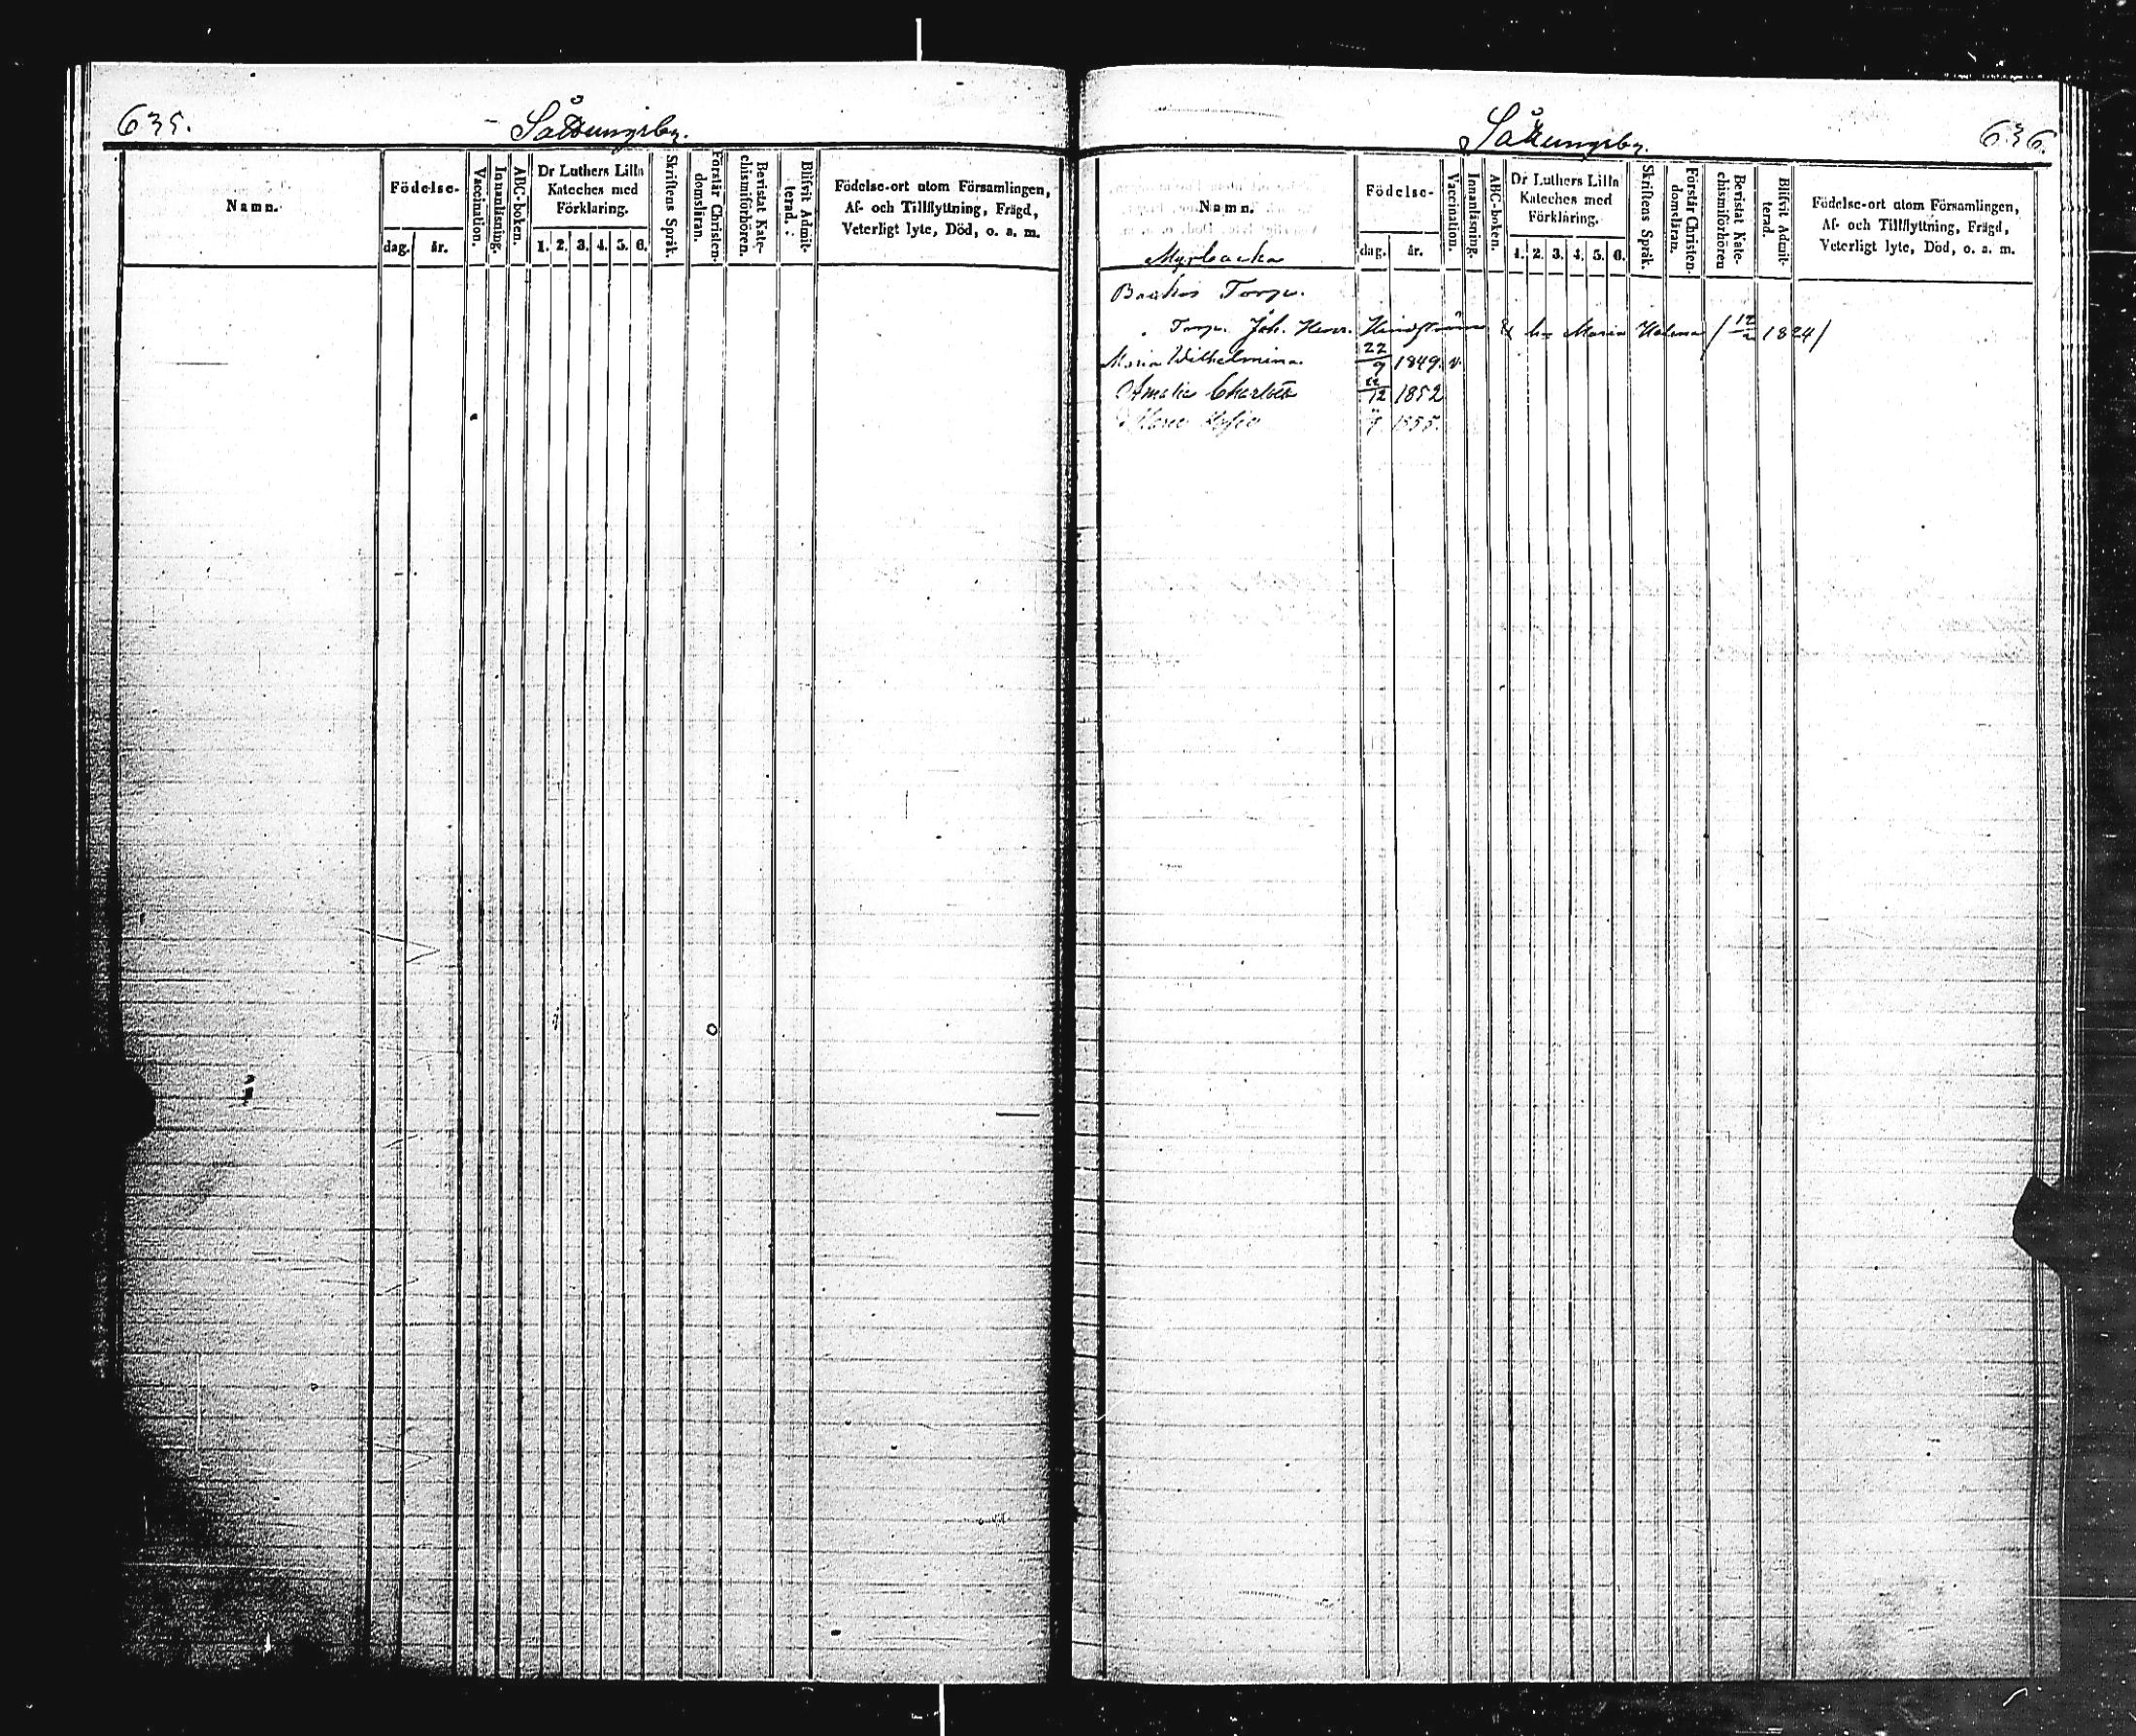 635.
Såttungsby.
Namn.
Födelse-
dag. år.
Vaccination.
Innanläsning.
ABC-boken.
Dr Luthers Lilla
Kateches med
Förklaring.
1. 2. 3. 4. 5. 6.
Skriftens Språk.
Förstår Christen-
domsläran.
Bevistat Kate-
chismiförhören.
Blifvit Admit-
terad.
Födelse-ort utom Församlingen,
Af- och Tillflyttning, Frägd,
Veterligt lyte, Död, o. s. m.
Såttungsby.
636.
Namn.
Myrbacka
Födelse-
dag. år.
Vaccination.
Innanläsning.
ABC-boken.
Dr Luthers Lilla
Kateches med
Förklaring.
1. 2. 3. 4. 5. 6.
Skriftens Språk.
Förstår Christen-
domsläran.
Bevistat Kate-
chismiförhören
Blifvit Admit-
terad.
Födelse-ort utom Församlingen,
Af- och Tillflyttning, Frägd,
Veterligt lyte, Död, o. s. m.
Backas Torp.
Torp. Joh. Henr. & h. Maria Helena 1824/
Maria Wilhelmina 22/9 1849. v.
Amalia Charlotta 12 1852
Sofia 1855.